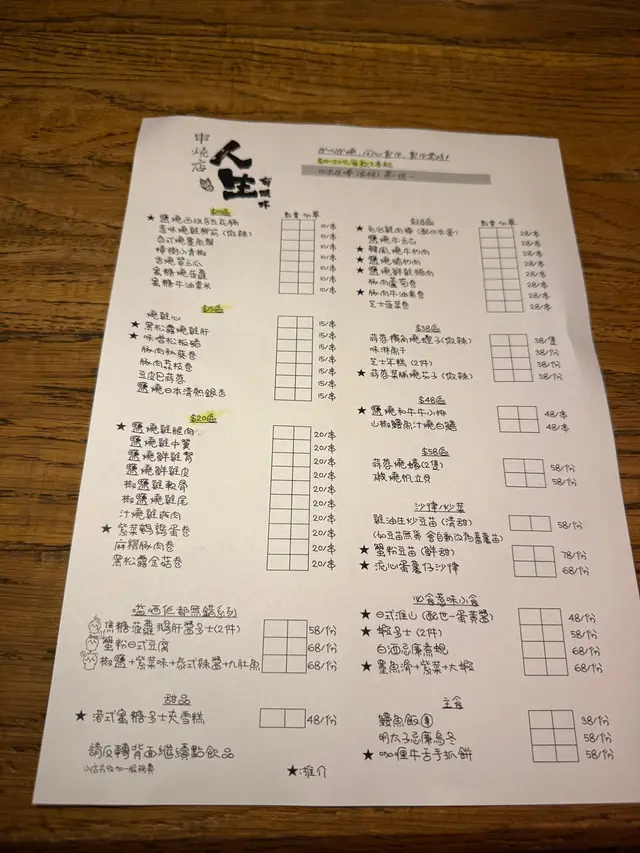 串燒店
人生
有串杯
$10區
數量 枱單
★ 鹽燒西班牙五花腩 10/串
惹味燒雞脾菇(微辣) 10/串
台式燒墨魚餅 10/串
椒鹽小青椒 10/串
吉燒翠玉瓜 10/串
蜜糖燒菠蘿 10/串
蜜糖牛油粟米 10/串
$15區
燒雞心 15/串
★ 黑松露燒雞肝 15/串
★ 味噌松板豬 15/串
豚肉秋葵卷 15/串
豚肉荔枝卷 15/串
豆皮巴蒜蓉 15/串
鹽燒日本清熱銀杏 15/串
$20區
★ 鹽燒雞腿肉 20/串
鹽燒雞中翼 20/串
鹽燒鮮雞腎 20/串
鹽燒鮮雞皮 20/串
椒鹽雞軟骨 20/串
椒鹽燒雞尾 20/串
汁燒雞疾肉 20/串
★ 紫菜鵪鶉蛋卷 20/串
麻糬豚肉卷 20/串
黑松露金菇卷 20/串
焦糖菠蘿鵝肝醬多士(2件) 58/份
蟹粉日式豆腐 68/份
椒鹽+紫菜味+泰式辣醬+九肚魚 68/份
甜品
★ 港式蜜糖多士夾雪糕 48/份
請反轉背面繼續點飲品
小店另收加一服務費
★:推介
$28區
數量 枱單
★ 免治雞肉棒(配日本蛋) 28/串
鹽燒牛舌芯 28/串
★ 韓風燒牛肋肉 28/串
★ 鹽燒豬肋肉 28/串
★ 鹽燒鮮雞腿肉 28/串
豚肉蘆荀卷 28/串
★ 豚肉牛油果卷 28/串
芝士菠菜卷 28/串
$38區
蒜蓉獨角燒蟶子(微辣) 38/隻
味淋魚干 38/份
芝士年糕(2件) 38/份
★ 蒜蓉菜脯燒茄子(微辣) 38/份
$48區
★ 鹽燒和牛牛小排 48/串
山椒鰻魚汁燒白鱔 48/串
$58區
蒜蓉燒蠔(2隻) 58/份
磯燒帆立貝 58/份
沙律/炒菜
雞油生炒豆苗(清甜) 58/份
(如豆苗無貨 會自動改為番薯苗)
★ 蟹粉豆苗(鮮甜) 78/份
★ 流心蛋薯仔沙律 68/份
必食惹味小食
★ 日式淮山(配世一蛋黃醬) 48/份
★ 蝦多士(2件) 68/份
白酒忌廉煮蜆 68/份
★ 墨魚滑+紫菜+大蝦 68/份
主食
鰻魚飯 38/份
明太子忌廉烏冬 58/份
★ 咖喱牛舌手抓餅 58/份